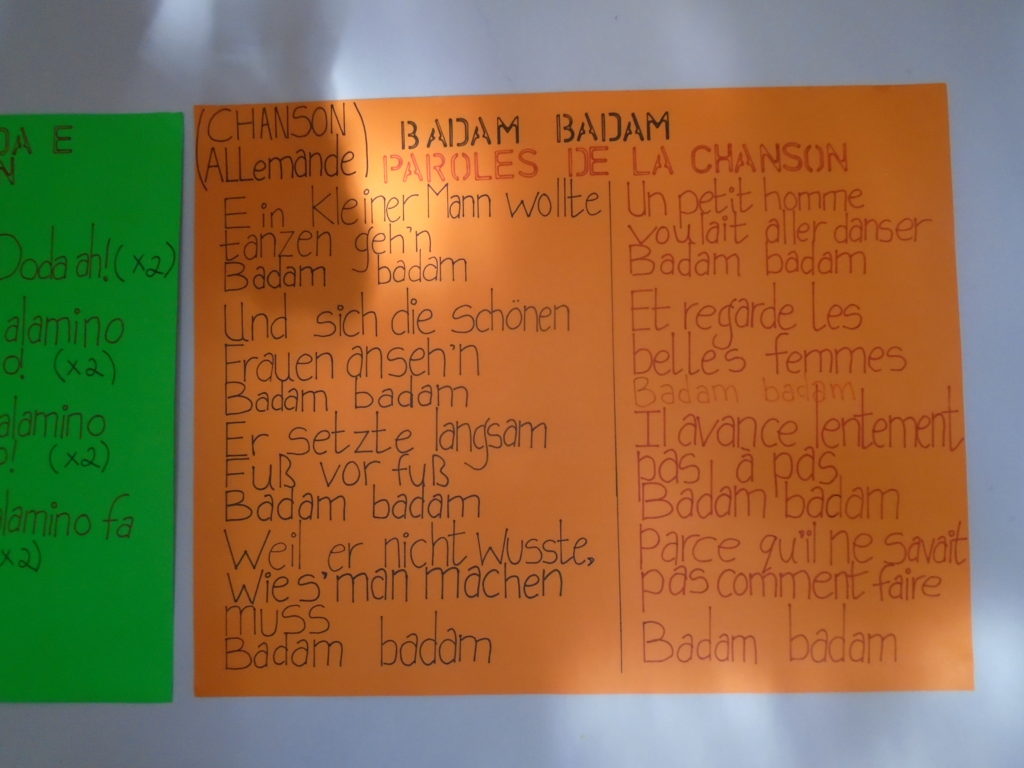 DA E
N
Doda ah! (x2)
alamino
o! (x2)
alamino
o! (x2)
alamino fa
x2)
(CHANSON)
(ALLemande)
BADAM BADAM
PAROLES DE LA CHANSON
Ein Kleiner Mann wollte
tanzen geh'n
Badam badam
Und sich die schönen
Frauen anseh'n
Badam badam
Er setzte langsam
Fuß vor fuß
Badam badam
Weil er nicht wusste,
wie s' man machen
muss
Badam badam
Un petit homme
voulait aller danser
Badam badam
Et regarde les
belles femmes
Badam badam
Il avance lentement
pas à pas
Badam badam
Parce qu'il ne savait
pas comment faire
Badam badam